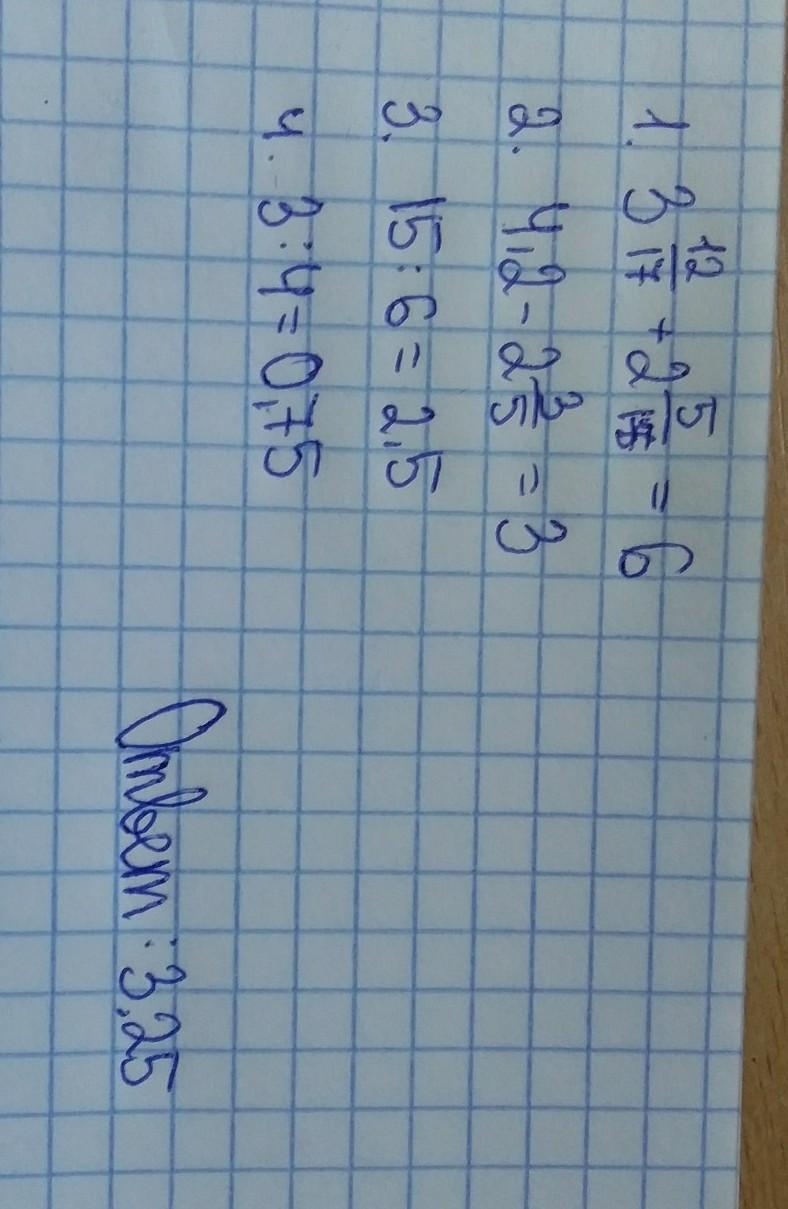 1. 3 12/17 + 2 5/17 = 6
2. 4,2 - 2 3/5 = 3
3. 15 : 6 = 2,5
4. 3 : 4 = 0,75
Ответ : 3,25